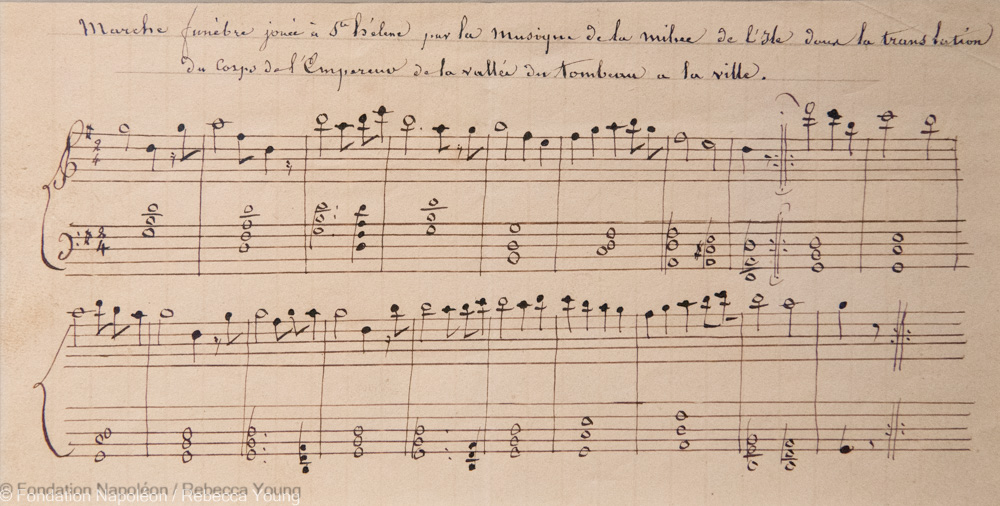 Marche funèbre jouée à Ste hélène par la musique de la milice de l'Isle dans la translation
du corps de l'Empereur de la vallée du tombeau a la ville.
2
4
2
4
© Fondation Napoléon / Rebecca Young